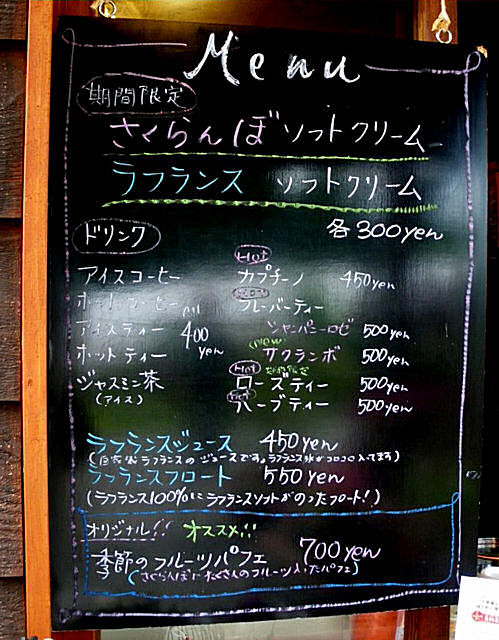 Menu
期間限定
さくらんぼソフトクリーム
ラフランス ソフトクリーム
各300yen
ドリンク
アイスコーヒー
ホットコーヒー
アイスティー
ホットティー
all 400yen
ジャスミン茶
(アイス)
Hot
カプチーノ 450yen
フレーバーティー
シャンパーニュロゼ 500yen
new
サクランボ 500yen
Hot 期間限定
ローズティー 500yen
Hot
ハーブティー 500yen
ラフランスジュース 450yen
(自家製ラフランスのジュースです。ラフランス氷がコロコロ入ってます)
ラフランスフロート 550yen
(ラフランス100%にラフランスソフトがのったフロート!)
オリジナル!! オススメ!!
季節のフルーツパフェ 700yen
(さくらんぼにたくさんのフルーツ入ったパフェ)